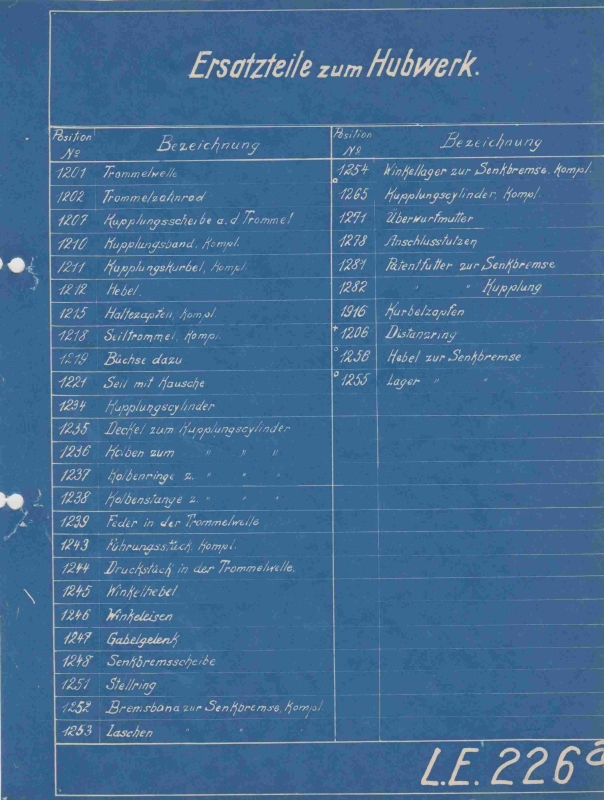 Ersatzteile zum Hubwerk.
Position No Bezeichnung
1201 Trommelwelle
1202 Trommelzahnrad
1207 Kupplungsscheibe a. d Trommel
1210 Kupplungsband, Kompl.
1211 Kupplungskurbel, Kompl.
1212 Hebel.
1215 Haltezapfen, Kompl.
1218 Seiltrommel, Kompl.
1219 Büchse dazu
1221 Seil mit Kausche
1234 Kupplungscylinder
1235 Deckel zum Kupplungscylinder
1236 Kolben zum " " "
1237 Kolbenringe z. " " "
1238 Kolbenstange z. " " "
1239 Feder in der Trommelwelle
1243 Führungsstück, Kompl.
1244 Druckstück in der Trommelwelle.
1245 Winkelhebel
1246 Winkeleisen
1247 Gabelgelenk
1248 Senkbremsscheibe
1251 Stellring
1252 Bremsband zur Senkbremse, Kompl.
1253 Laschen " " "
Position No Bezeichnung
1254 Winkellager zur Senkbremse. Kompl.
o 1265 Kupplungscylinder, Kompl.
1271 Überwurfmutter
1278 Anschlusstutzen
1281 Patentfutter zur Senkbremse
1282 " " Kupplung
1916 Kurbelzapfen
+ 1206 Distanzring
o 1256 Hebel zur Senkbremse
o 1255 Lager " "
L.E. 226a